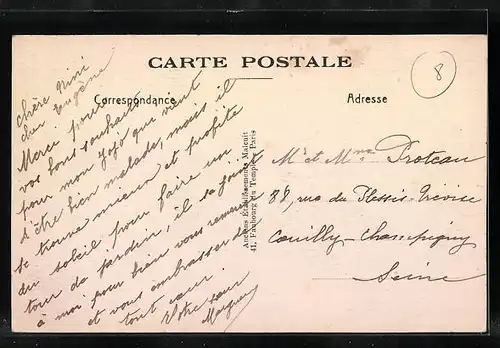 CARTE POSTALE
8
Correspondance
Adresse
chère Nini
cher Eugène
Merci pour
vos bons souhaits
pour mon Jojo qui vient
d'être bien malade, mais il
se trouve mieux et profite
du soleil pour faire un
tour de jardin, il se joint
à moi pour bien vous remercier
et vous embrasser de
tout cœur.
Votre sœur
Anciens Établissements Malcuit
41, Faubourg du Temple - Paris
Mr et Mme Proteau
88, rue du Plessis-Trévise
Cœuilly-Champigny
Seine